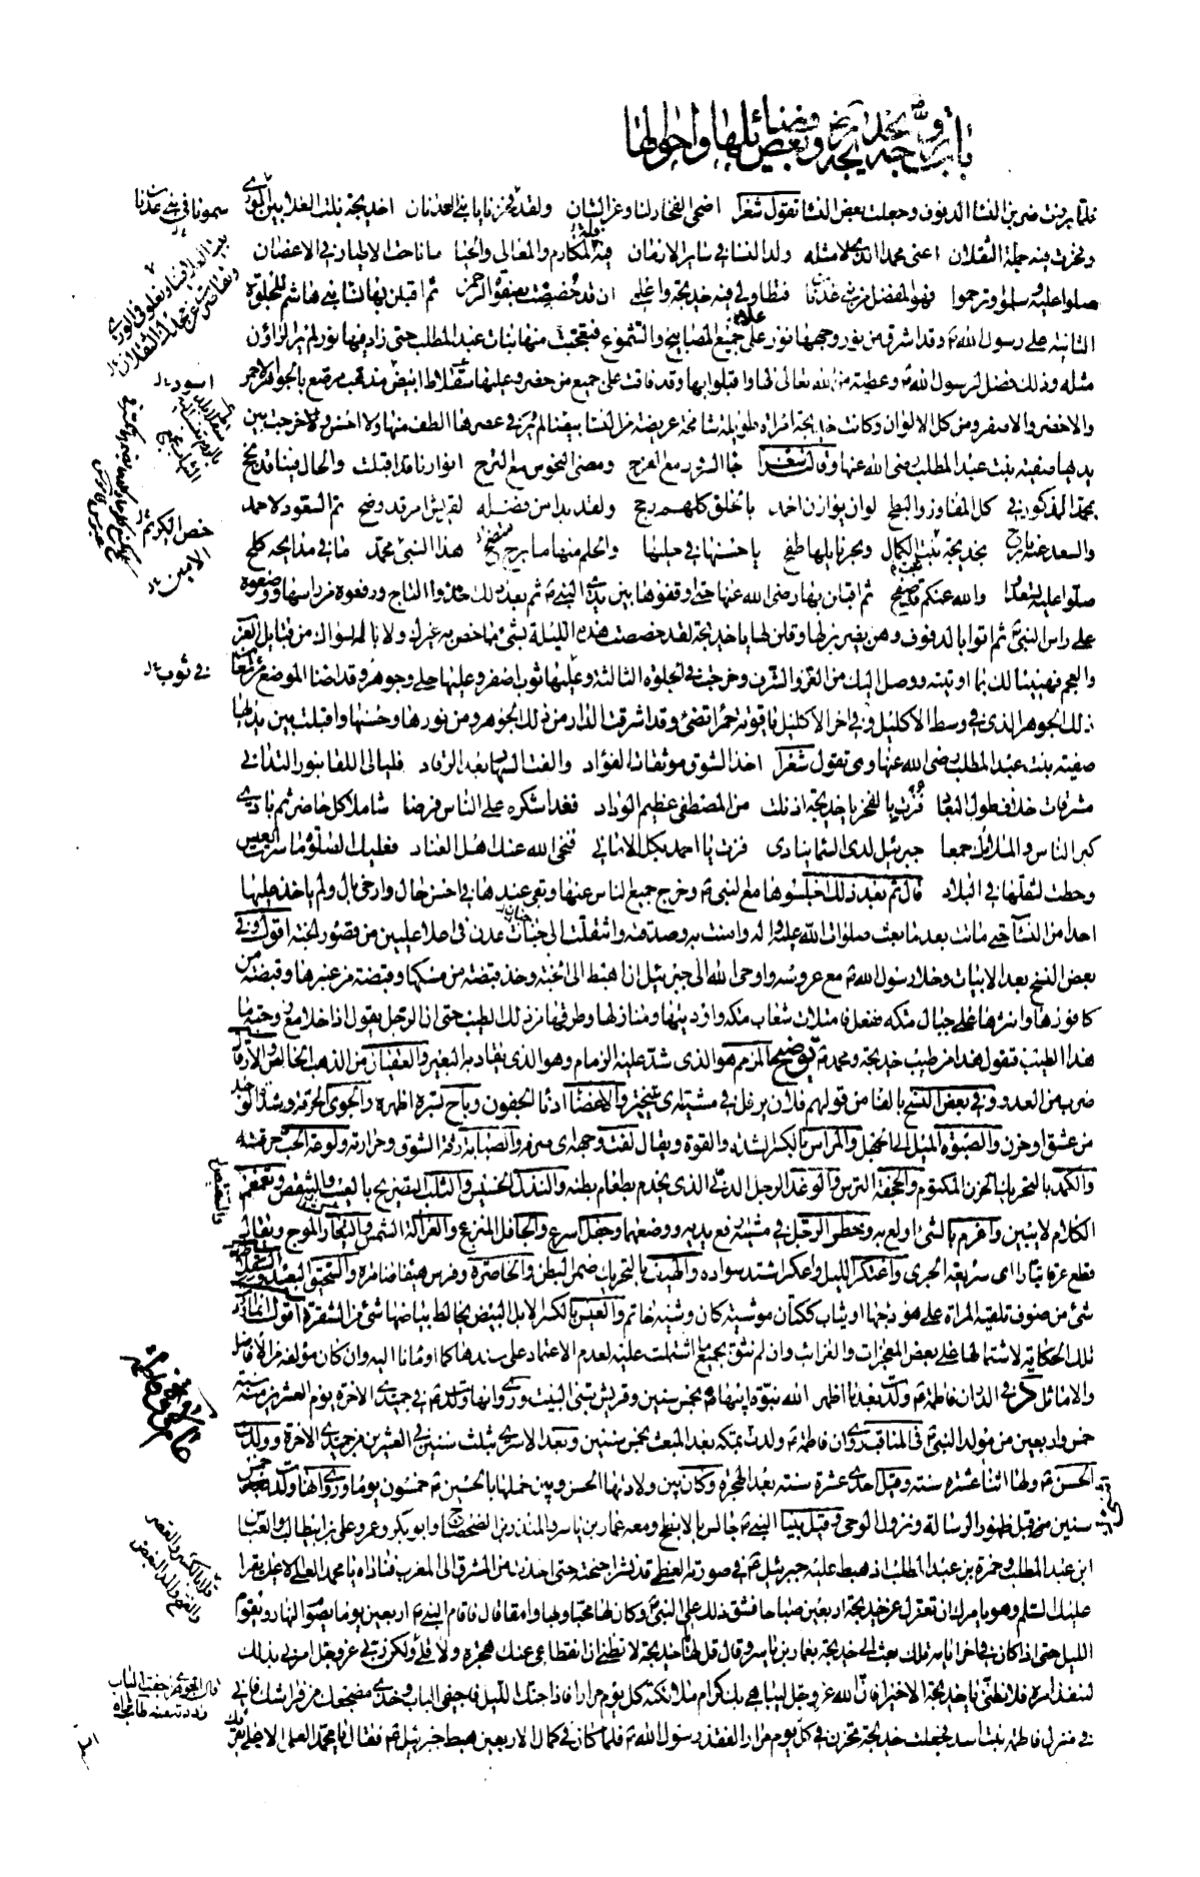 باب تزوجه ص بخديجة رض وبعض فضائلها واحوالها
فلما برزت ضربن النساء الدفوف وجعلت بعض النساء تقول شعرا اضحى الفخار لنا وعز الشان ولقد فخرنا يا بني العدنان اخديجة نلت العلا بين الورى
وفخرت فيه جملة الثقلان اعنى محمدا الذي لا مثله ولد النساء في ساير الازمان فيه المكارم والمعالي والحيا ما ناحت الاطيار في الاغصان
صلوا عليه وسلموا وترحموا فهو المفضل من بني عدنانا فتطاولي فيه خديجة واعلمي ان قد خصصت بصفوة الرحمن ثم اقبلن بها النساء بني هاشم للجلوة
الثانية على رسول الله ص وقد اشرق من نور وجهها نور علا على جميع المصابيح والشموع فتعجبت منها بنات عبد المطلب حتى زاد فيها نور لم ير الراؤن
مثله وذلك فضل لرسول الله ص وعطية من الله تعالى لها واقبلوا بها وقد فاقت على جميع من حضر وعليها سقلاط ابيض مذهب مرصع بالجواهر الاحمر
والاخضر والاصفر ومن كل الالوان وكانت خديجة امراة طويلة شامخة عريضة من النساء بيضا لم ير في عصرها الطف منها ولا احسن وخرجت بين
يديها صفية بنت عبد المطلب رضى الله عنها وقالت شعرا جاء السرور مع الفرح ومضى النحوس مع الترح انوارنا قد اقبلت والحال فينا قد نجح
بمحمد المذكور في كل المفاوز والبطح لو ان يوازن احمد بالخلق كلهم رجح ولقد بدا من فضله لقريش امر قد وضح ثم السعود لاحمد
والسعد عنه ما برح بخديجة بنت الكمال وبحر نايلها طفح يا حسنها في حليها والحلم منها ما برح هذا النبي محمد ما في مدايحه كلح
صلوا عليه تسعدوا والله عنكم قد صفح ثم اقبلن بها رضى الله عنها حتى اوقفوها بين يدي النبي ص ثم بعد ذلك اخذوا التاج ورفعوه من راسها ووضعوه
على راس النبي ص ثم اتوا بالدفوف وهن يضربن لها وقلن لها يا خديجة لقد خصصت هذه الليلة بشئ ما خص به غيرك ولا ناله سواك من قبايل العرب
والعجم فهنيئا لك بما اوتيته ووصل اليك من العز والشرف وخرجت في الجلوة الثالثة وعليها ثوب اصفر وعليها حلي وجوهر وقد اضاء الموضع من لمعان
ذلك الجوهر الذي في وسط الاكليل وفي اخر الاكليل ياقوتة حمراء تضئ وقد اشرقت الدار من ذلك الجوهر ومن نورها وحسنها واقبلت بين يديها
صفية بنت عبد المطلب رضى الله عنها وهي تقول شعرا اخذ الشوق موثقات الفؤاد والفت السهاد بعد الرقاد فليالي اللقا بنور التداني
مشرقات خلاف طول البعاد فزت بالفخر يا خديجة اذ نلت من المصطفى عظيم الوداد فغدا شكره على الناس فرضا شاملا كل حاضر ثم بادي
كبر الناس والملائك جمعا جبرئيل لدى السماء ينادي فزت يا احمد بكل الاماني فنحى الله عنك اهل العناد فعليك الصلوة ما سرت العيس
وحطت لثقلها في البلاد قال ثم بعد ذلك اجلسوها مع النبي ص وخرج جميع الناس عنها وبقى عندها في احسن حال وارخى بال ولم ياخذ عليها
احدا من النساء حتى ماتت بعد ما بعث صلوات الله عليه واله وامنت به وصدقته وانتقلت الى جنات عدن في اعلا عليين من قصور الجنة اقول وفي
بعض النسخ بعد الابيات وخلا رسول الله ص مع عروسه واوحى الله الى جبرئيل ان اهبط الى الجنة وخذ قبضة من مسكها وقبضة من عنبرها وقبضة من
كافورها وانثرها على جبال مكة ففعل فامتلات شعاب مكة واوديتها ومنازلها وطرقها من ذلك الطيب حتى ان الرجل يقول اذا خلا مع زوجته ما
هذا الطيب فتقول هذا من طيب خديجة ومحمد ص توضيح المزمم هو الذي شد عليه الزمام وهو الذي يقاد به البعير والعقيان من الذهب الخالص والارقال
ضرب من العدو وفي بعض النسخ بالفا من قولهم فلان يرفل في مشيته اى يتبختر والاغضاء ادناء الجفون وباح بسره اظهره والجوى الحرقة وشدة الوجد
من عشق او حزن والصبوة الميل الى الجهل والمراس بالكسر الشدة والقوة ويقال لفت وجهه اى صرفه والصبابة رقة الشوق وحرارته ولوعة الحب حرقته
والكمد بالتحريك الحزن المكتوم والجحفة الترس والوغد الرجل الدني الذي يخدم بطعام بطنه والنذل الخسيس والثلب التصريح بالعيب والتنقص وتمغمغ
الكلام لا يتبين واغرم بالشئ اولع به وخطر الرجل في مشيته رفع يديه ووضعهما وجفل اسرع والجافل المنزعج والغزالة الشمس والتيار الموج ويقال
قطع عرقا تيارا اى سريعة الجرى واعتكر الليل واعكر اشتد سواده والهيف بالتحريك ضمر البطن والخاصرة وفرس هيفاء ضامرة والسحيق البعيد والسقلاط
شئ من صوف تلقيه المراة على هودجها او ثياب كتان موشية كان وشيه خاتم والعيس بالكسر الابل البيض يخالط بياضها شئ من الشقرة اقول انما اوردت
تلك الحكاية لاشتمالها على بعض المعجزات والغرائب وان لم نثق بجميع ما اشتملت عليه لعدم الاعتماد على سندها كما اومانا اليه وان كان مؤلفه من الافاضل
والاماثل كر في الدر ان فاطمة ع ولدت بعد ما اظهر الله نبوة ابيها ص بخمس سنين وقريش تبنى البيت وروي انها ولدت ع في جميدي الاخرة يوم العشرين منه سنة
خمس واربعين من مولد النبي ص في المناقب روي ان فاطمة ع ولدت بمكة بعد المبعث بخمس سنين وبعد الاسرى بثلث سنين في العشرين من جميدي الاخرة وولدت
الحسن ع ولها اثنا عشرة سنة وقيل احدى عشرة سنة بعد الهجرة وكان بين ولادتها الحسن وبين حملها بالحسين ع خمسون يوما وروي انها ولدت بعد خمس
سنين من قبل ظهور الرسالة ونزول الوحي وقيل بينا النبي ص جالس بالابطح ومعه عمار بن ياسر والمنذر بن الضحضاح وابو بكر وعمر وعلى بن ابيطالب والعباس
ابن عبد المطلب وحمزة بن عبد المطلب اذ هبط عليه جبرئيل ع في صورته العظمى قد نشر اجنحته حتى اخذت من المشرق الى المغرب فناداه يا محمد العلى الاعلى يقرا
عليك السلام وهو يامرك ان تعتزل عن خديجة اربعين صباحا فشق ذلك على النبي ص وكان لها محبا وبها وامقا قال فاقام النبي ص اربعين يوما يصوم النهار ويقوم
الليل حتى اذا كان في اخر ايامه تلك بعث الى خديجة بعمار بن ياسر وقال قل لها يا خديجة لا تظني ان انقطاعي عنك هجرة ولا قلى ولكن ربي عز وجل امرني بذلك
لتنفذ امره فلا تظني يا خديجة الا خيرا فان الله عز وجل ليباهي بك كرام ملائكته كل يوم مرارا فاذا جنك الليل فاجيفي الباب وخذي مضجعك من فراشك فاني
في منزل فاطمة بنت اسد فجعلت خديجة تحزن في كل يوم مرارا لفقد رسول الله ص فلما كان في كمال الاربعين هبط جبرئيل ع فقال يا محمد العلى الاعلى يقرئك
سمونا في بني عدنانا
اسود خ ل
خص الكريم خ ل
الامين خ ل
في ثوب خ ل
والتنقيص
قال الجوهري اجفت الباب
رددته